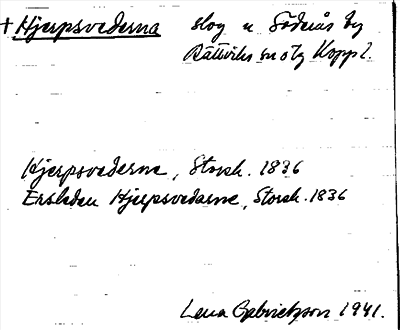 + Hjerpsvederna skog u Söderås by
Rättviks sn o tg Koppl.
Hjerpsvederne, Storsk. 1836
Ersleden Hjerpsvedarne, Storsk. 1836
Lena Gabrielsson 1941.